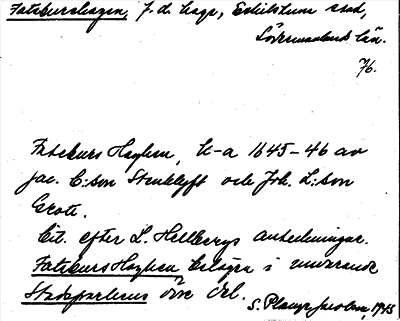 Fatsburshagen, f. d. hage, Eskilstuna stad,
Södermanlands län.
76.
Fatburs Haghen, k-a 1645-46 av
Jac. C:son Stenklyft och Joh. L:son
Grote.
Cit. efter L. Hellbergs anteckningar.
Fatsburs Haghen belägen i nuvarande
Stadsparkens östr del.
S. Plange Jacobson, 1945